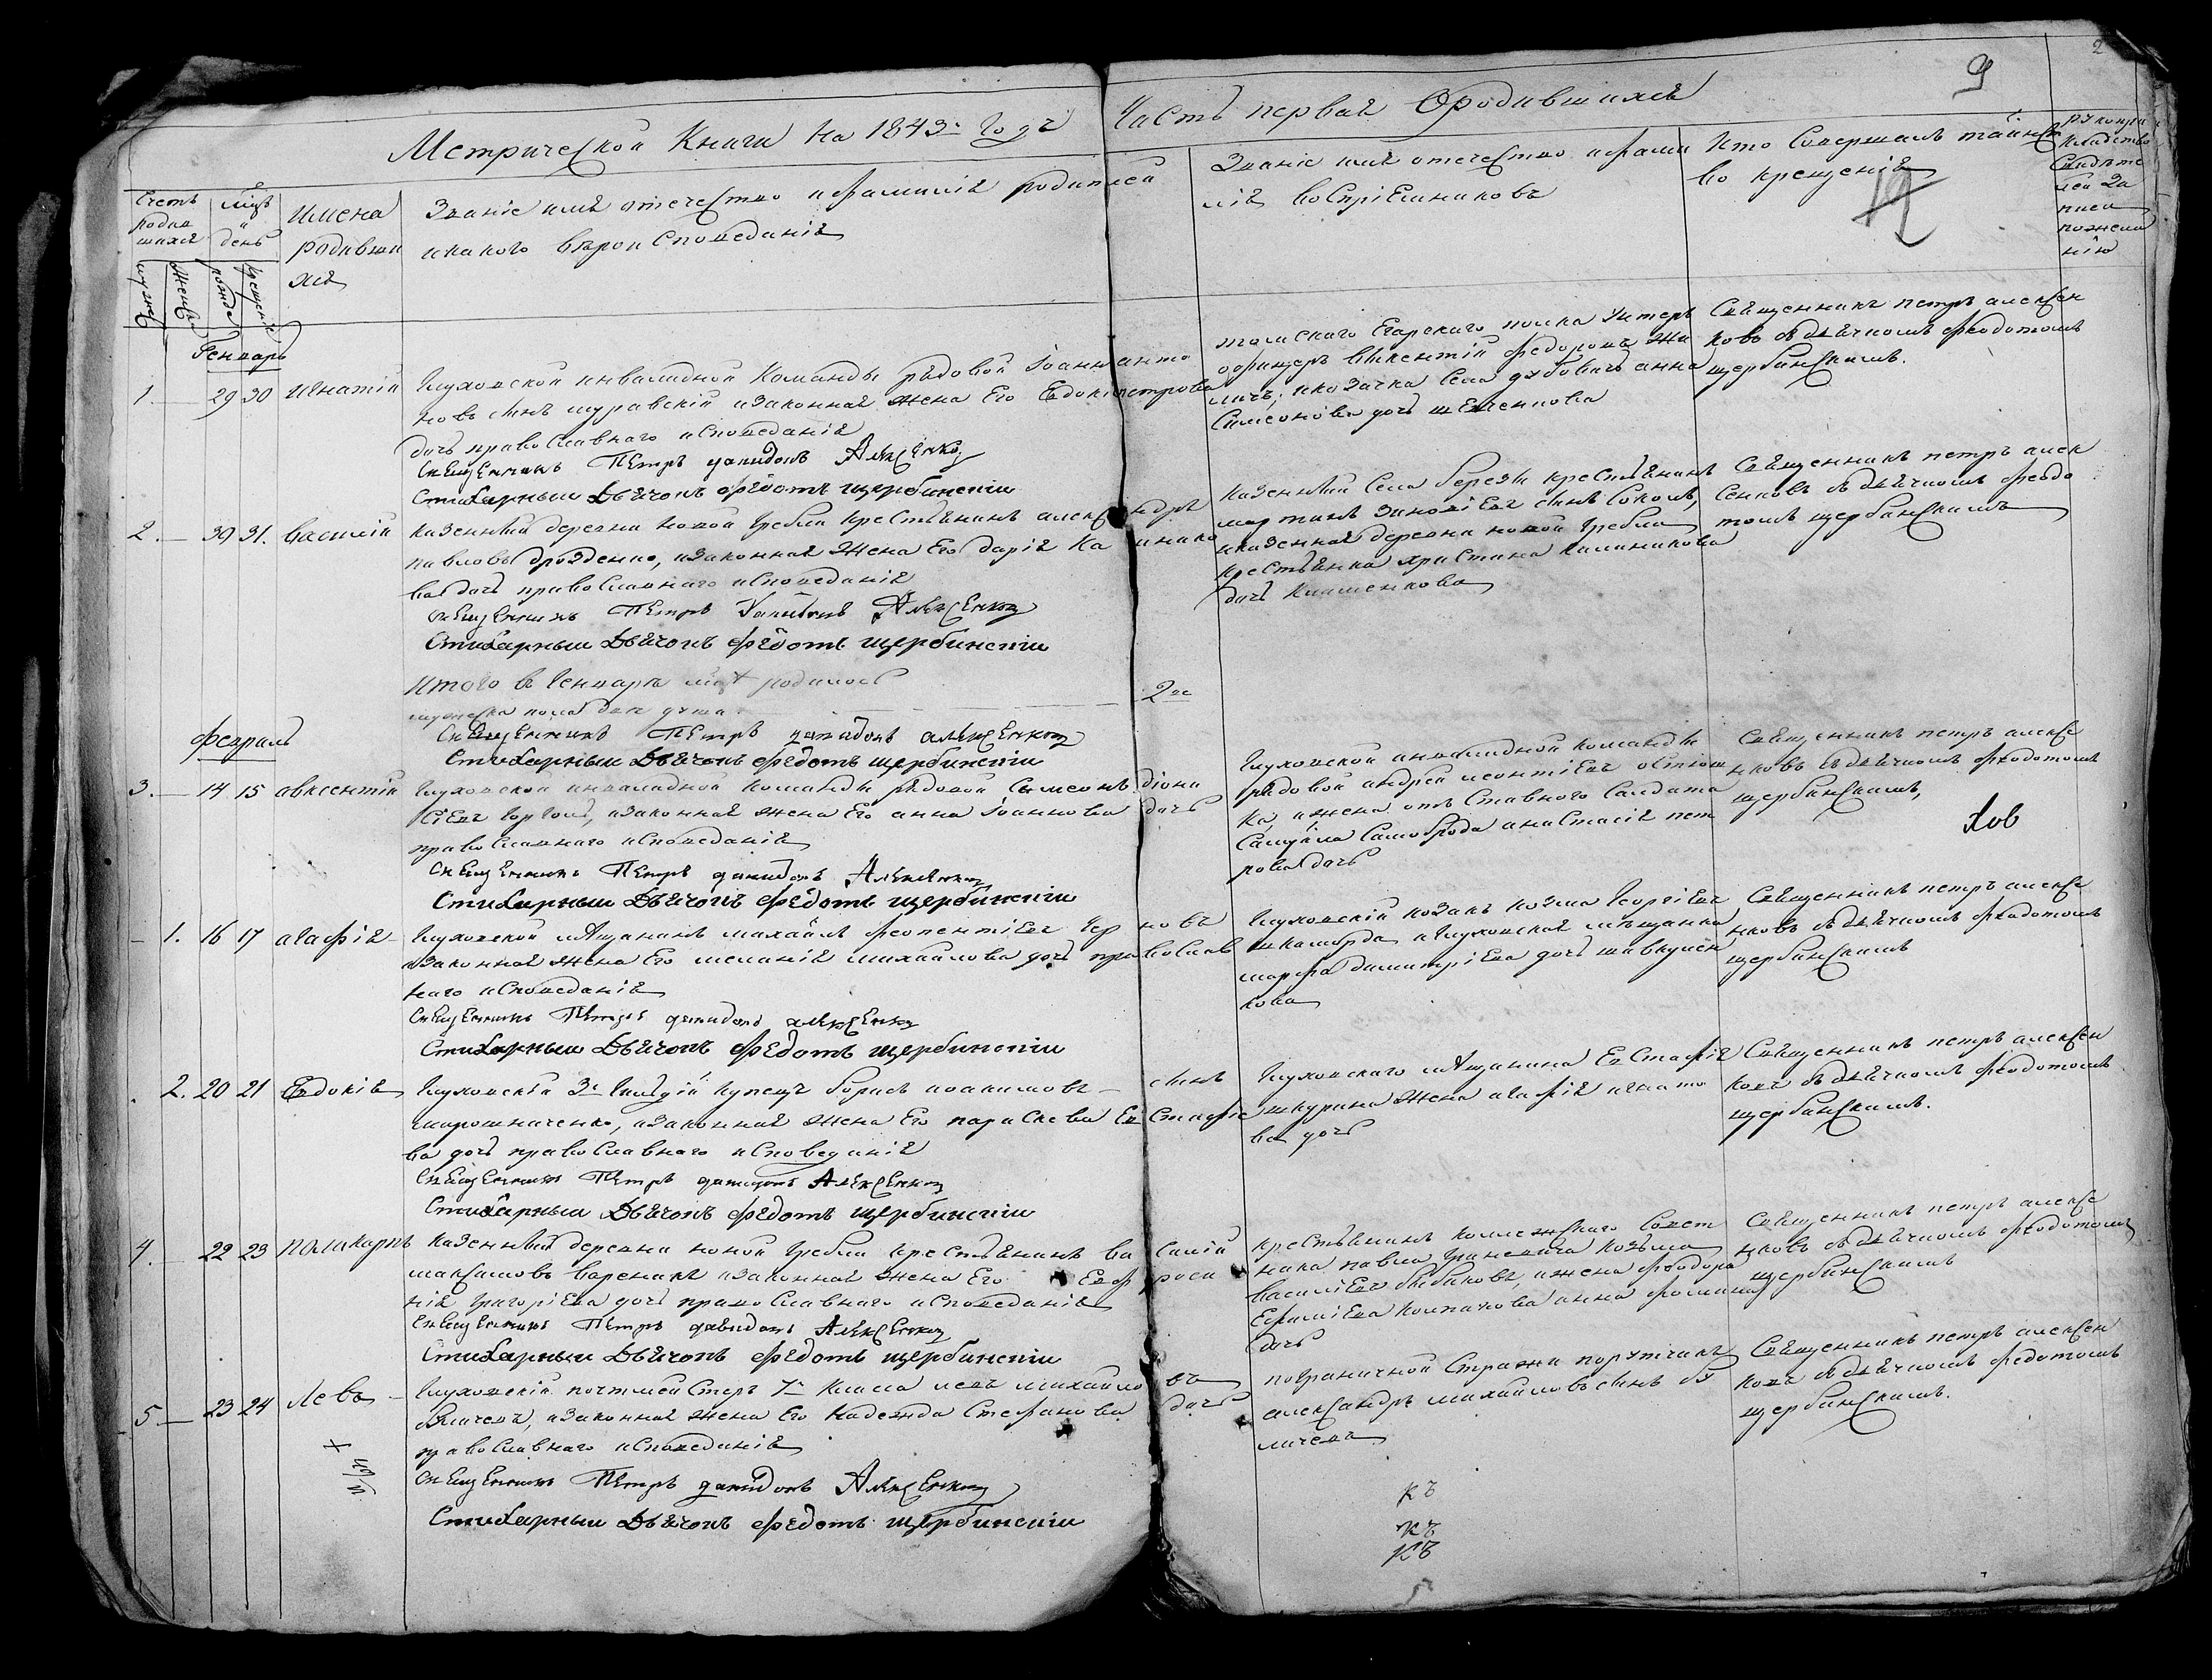 Метрической Книги на 1843й Годъ
Часть первая О родившихся
9
2
Счетъ родившихся
мужес
женска
Мцъ и день
рожде
крещенія
Имена родивши
хся
Званіе имя отечество и фамилія родителей
и какого вѣроисповеданія
Званіе имя отечество и фами
лія воспріемниковъ
Кто совершалъ таинст
во крещенія
рукопри
кладство
свидѣте
лей за
писи
пожела
нію
Генварь
1. 29 30 Игнатій
Глуховской инвалидной команды рядовой Іоаннъ Анто
новъ сынъ Муравскій и законная жена его Евдокія Петрова
дочь православнаго исповеданія
Священникъ Петръ Давидовъ Алексенко
Стихарный Дьячокъ Федотъ Щербинскій
Егарскаго полка унтеръ
офицеръ Викентій Федоровъ
личъ, и козачка села Дубовичъ Анна
Симеонова дочь Шевченкова
Священникъ Петръ Алексен
ковъ съ дьячкомъ Феодотомъ
Щербинскимъ.
2. 30 31. Василій
Казенный деревни новой Гребли крестьянинъ Александръ
Павловъ Дрозденко, и законная жена его Дарія Ка линико
ва дочь православнаго исповеданія
Священникъ Петръ Давидовъ Алексенко
Стихарный Дьячокъ Федотъ Щербинскій
Казенный села Березы крестьянинъ
Мартинъ Зиновіевъ сынъ Соколъ,
и казенная деревни новой Гребли
крестьянка Христина Калиникова
дочь Клименкова
Священникъ Петръ Алек
сенковъ съ дьячкомъ Феодо
томъ Щербинскимъ
Итого в Генварѣ мцѣ родилось
мужеска пола две душы 2ве
Священникъ Петръ Давидовъ Алексенко
Стихарный Дьячокъ Федотъ Щербинскій
Февраль
3. 14 15 Авксентій
Глуховской инвалидной команды рядовой Сымеонъ Діони
сіевъ, и законная жена его Анна Іоаннова дочь
православнаго исповеданія
Священникъ Петръ Давидовъ Алексенко
Стихарный Дьячокъ Федотъ Щербинскій
Глуховской инвалидной команды
рядовой Андрей Леонтіевъ
ка и жена отставного салдата
Самуила Самоброда Анастасія Пет
рова дочь
Священникъ Петръ Алексе
нковъ съ дьячкомъ Феодотомъ
Щербинскимъ,
1. 16 17 Агафія
Глуховской мѣщанинъ Михаилъ Чер новъ
и законная жена его Меланія Михайлова дочь пра вослав
наго исповеданія
Священникъ Петръ Давидовъ Алексенко
Стихарный Дьячокъ Федотъ Щербинскій
Глуховскій козакъ Козма Георгіевъ
Шкамарда и Глуховская мѣщанка
Марфа Димитріева дочь
кова
Священникъ Петръ Алексе
нковъ съ дьячкомъ Феодотомъ
Щербинскимъ
2. 20 21 Евдокія
Глуховскій 3й Гильдіи купецъ Борисъ Иоакимовъ сынъ
Мирошниченко, и законная жена его Параскева Ев стафіе
ва дочь православнаго исповеданія
Священникъ Петръ Давидовъ Алексенко
Стихарный Дьячокъ Федотъ Щербинскій
Глуховскаго мѣщанина Евстафія
Шкурина жена Агафія Игнато
ва дочь
Священникъ Петръ Алексен
ковъ съ дьячкомъ Феодотомъ
Щербинскимъ.
4. 22 23 Поликарпъ
Казенный деревни новой Гребли крестьянинъ Ва силій
Максимовъ Вареникъ и законная жена его Евф роси
нія Григоріева дочь православнаго исповеданія
Священникъ Петръ Давидовъ Алексенко
Стихарный Дьячокъ Федотъ Щербинскій
Крестьянинъ коллежскаго совет
ника Павла Козьма
Василіевъ Бибиковъ, и жена Феодора
Ефиміева Колпакова Анна Фомина
дочь
Священникъ Петръ Алексе
нковъ съ дьячкомъ Феодотомъ
Щербинскимъ
5 23 24 Левъ
Глуховскій почтмейстеръ 7й класса Левъ Михайло въ
Бѣличевъ, и законная жена его Надежда Стефанова дочь
православнаго исповеданія
Священникъ Петръ Давидовъ Алексенко
Стихарный Дьячокъ Федотъ Щербинскій
пограничной стражи порутчикъ
Александръ Михайловъ сынъ Бѣ
личевъ
Священникъ Петръ Алексен
ковъ съ дьячкомъ Федотомъ
Щербинскимъ.
КЪ
КЪ
КЪ